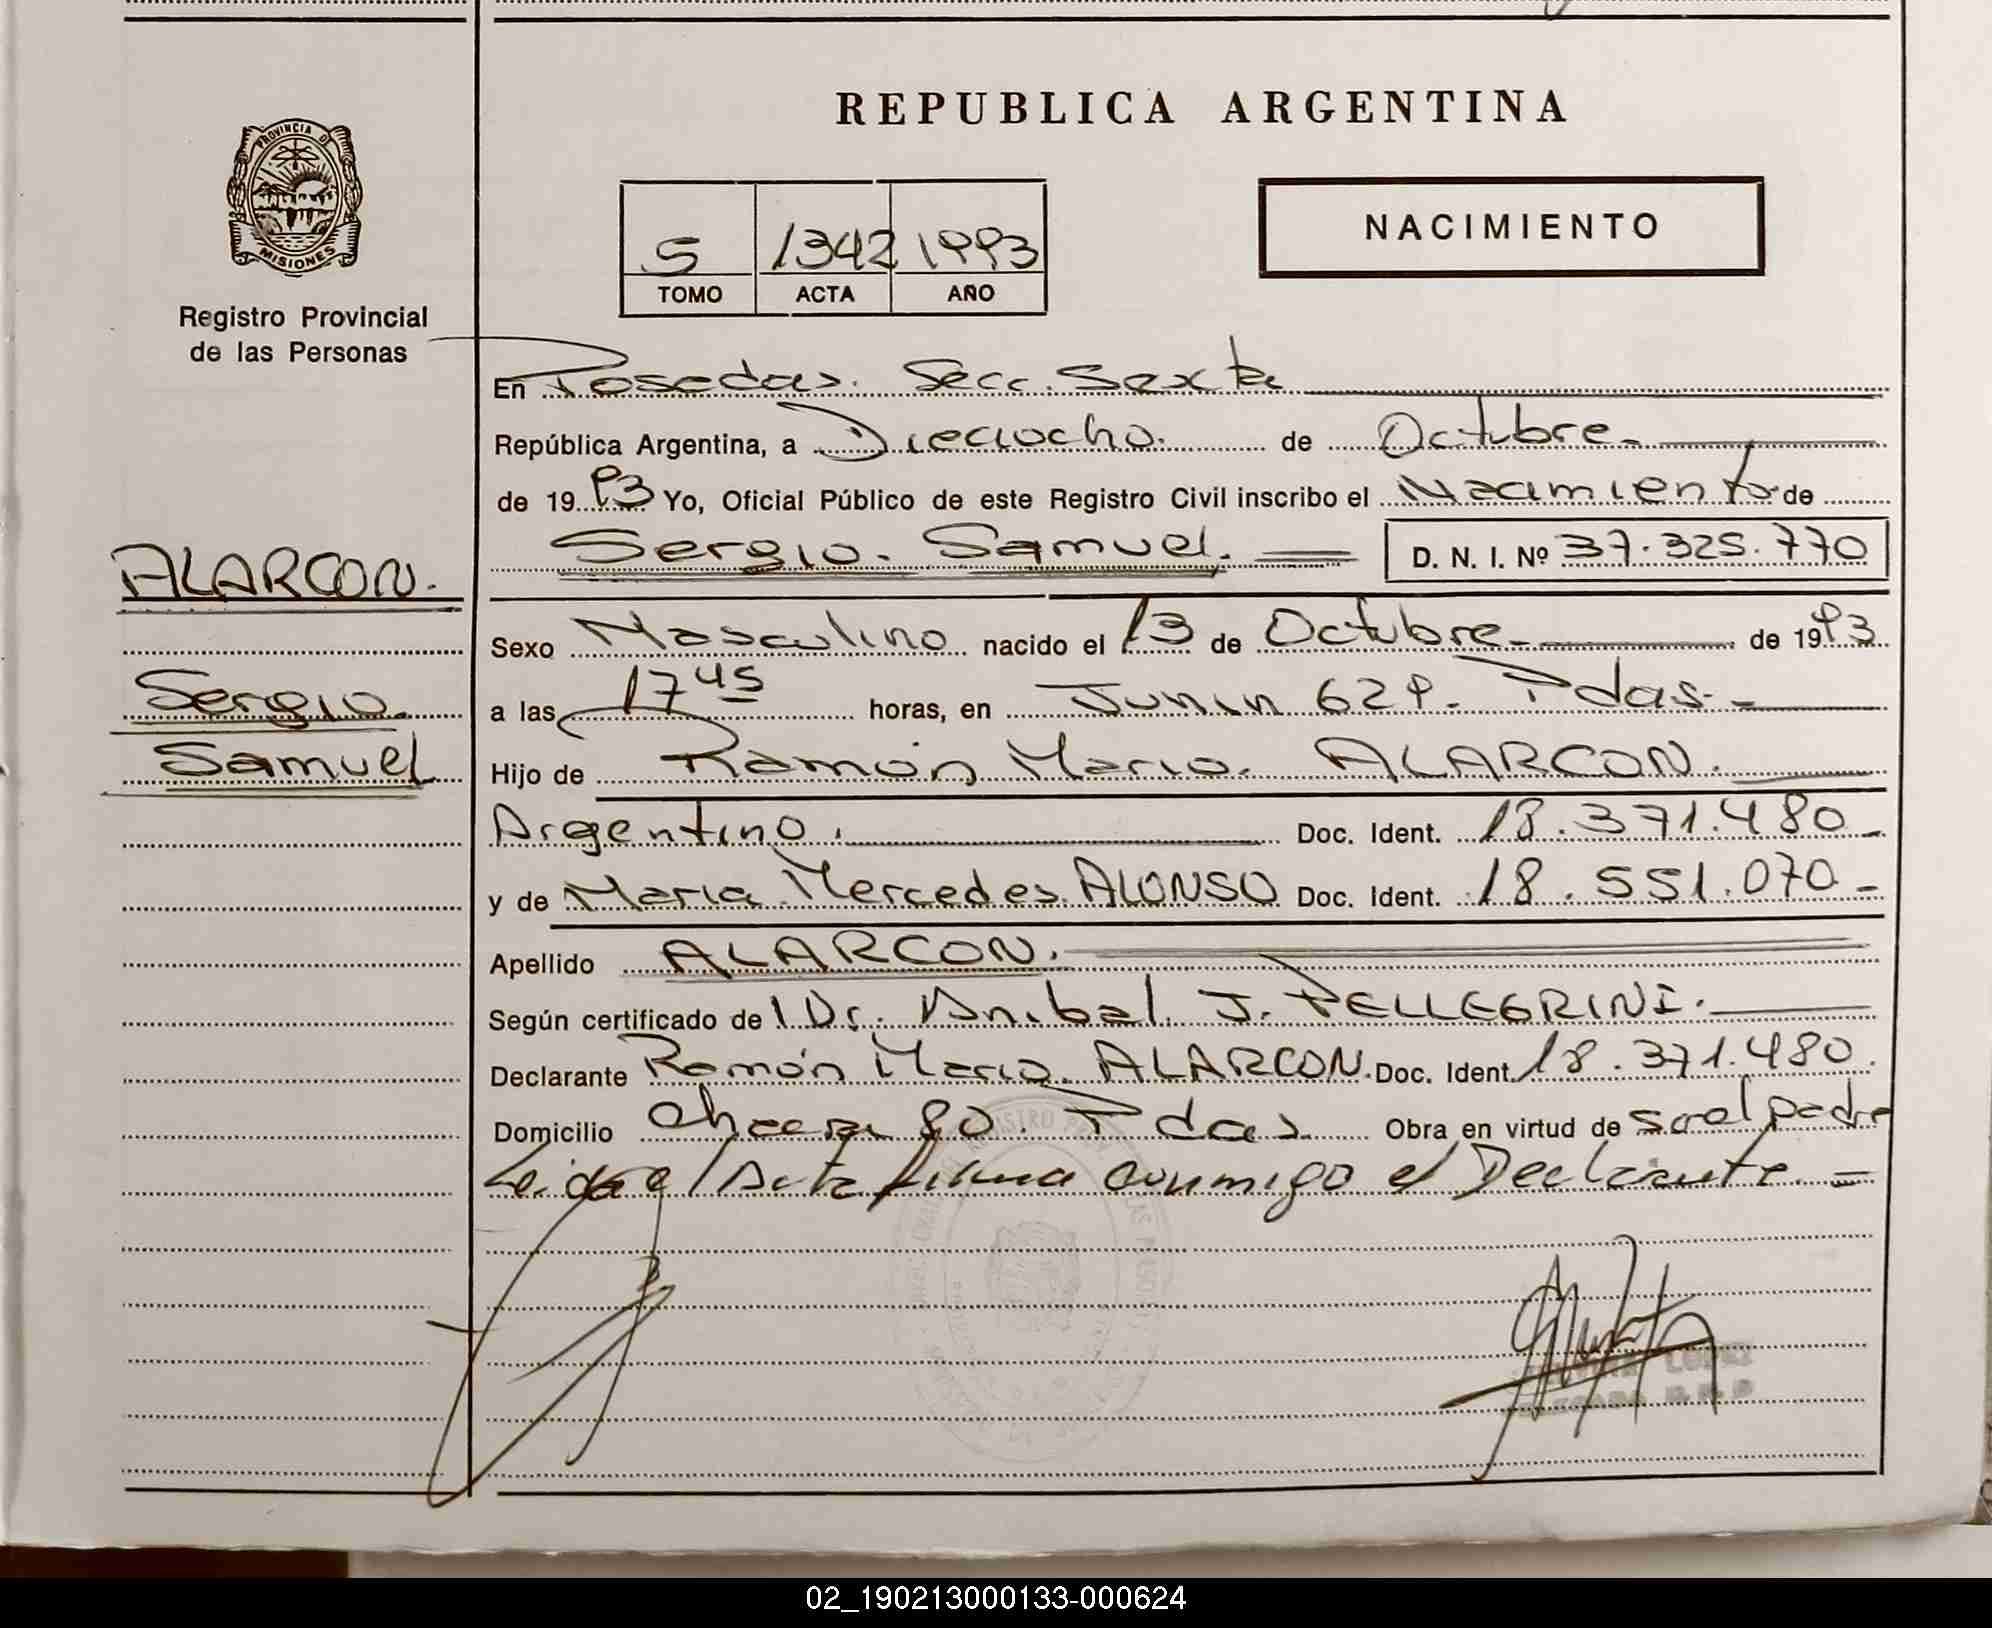 REPUBLICA ARGENTINA
PROVINCIA D
MISIONES
Registro Provincial
de las Personas
NACIMIENTO
5 1342 1993
TOMO ACTA AÑO
En Posadas. Secc. Sexta
República Argentina, a Dieciocho. de Octubre.
de 19 93 Yo, Oficial Público de este Registro Civil inscribo el Nacimiento de
Sergio. Samuel. D. N. I. Nº 37.325.770
ALARCON.
Sergio.
Samuel
Sexo Masculino nacido el 13 de Octubre de 19 93
a las 17 45 horas, en Junin 629. Pdas.
Hijo de Ramón Mario. ALARCON.
Argentino. Doc. Ident. 18.371.480
y de Maria Mercedes ALONSO Doc. Ident. 18.551.070
Apellido ALARCON.
Según certificado de l Dr. Anibal J. PELLEGRINI.
Declarante Ramón Mario. ALARCON. Doc. Ident. 18.371.480.
Domicilio Chacra 80. Pdas Obra en virtud de ser el padre
Leida el Acta firma conmigo el Declarante.
LOPEZ
02_190213000133-000624